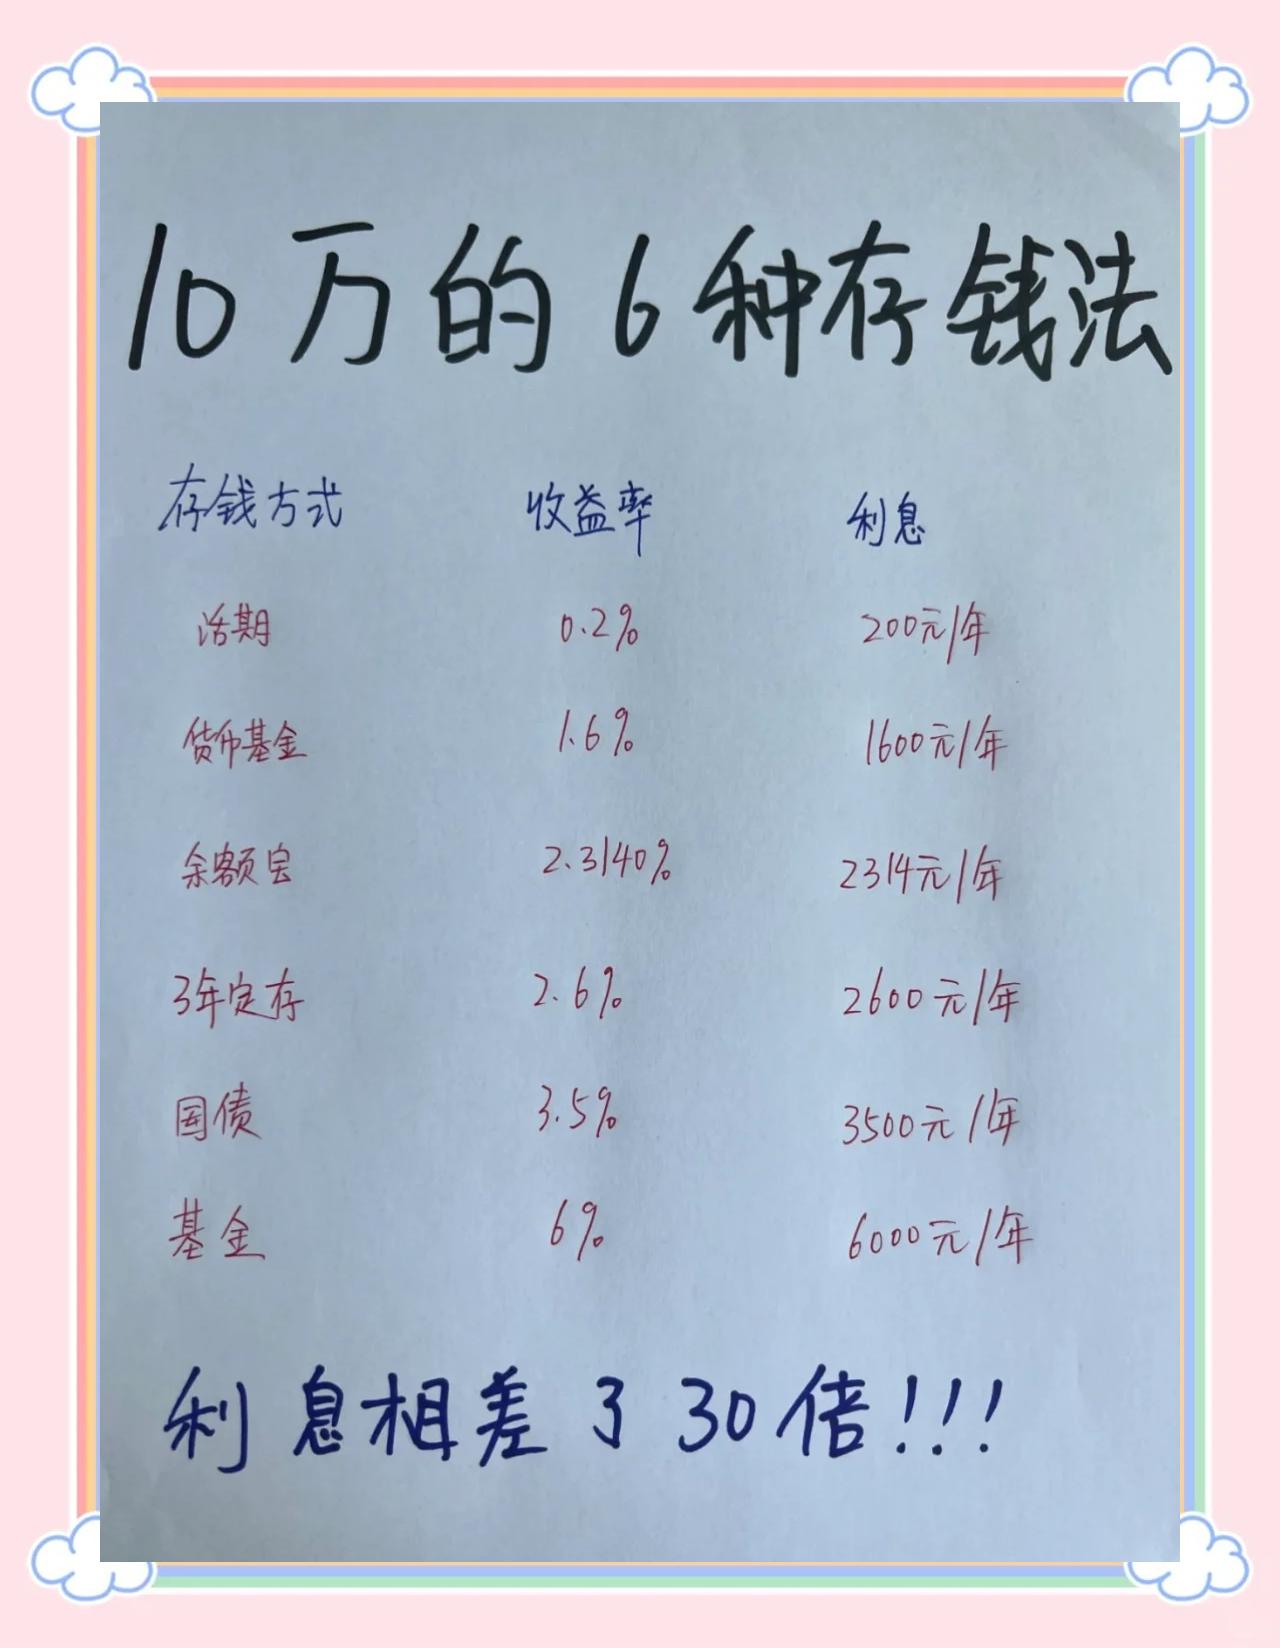 10万的6种存钱法
存钱方式 收益率 利息
活期 0.2% 200元/年
货币基金 1.6% 1600元/年
余额宝 2.3140% 2314元/年
3年定存 2.6% 2600元/年
国债 3.5% 3500元/年
基金 6% 6000元/年
利息相差了30倍!!!